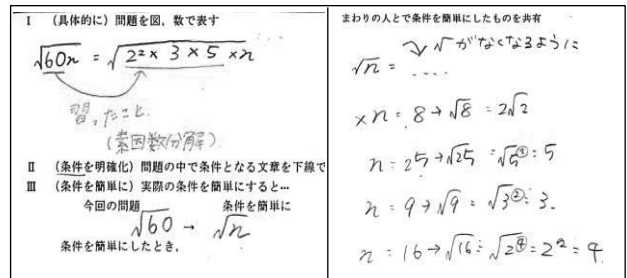 Ⅰ （具体的に）問題を図，数で表す
√60n = √2²×3×5×n
習ったこと.
(素因数分解)
Ⅱ （条件を明確化）問題の中で条件となる文章を下線で
Ⅲ （条件を簡単に）実際の条件を簡単にすると…
今回の問題 条件を簡単に
√60 → √n
条件を簡単にしたとき，
まわりの人とで条件を簡単にしたものを共有
√がなくなるように
√n = ....
×n = 8 → √8 = 2√2
n = 25 → √25 = √5² = 5
n = 9 → √9 = √3² = 3.
n = 16 → √16 = √2⁴ = 2² = 4